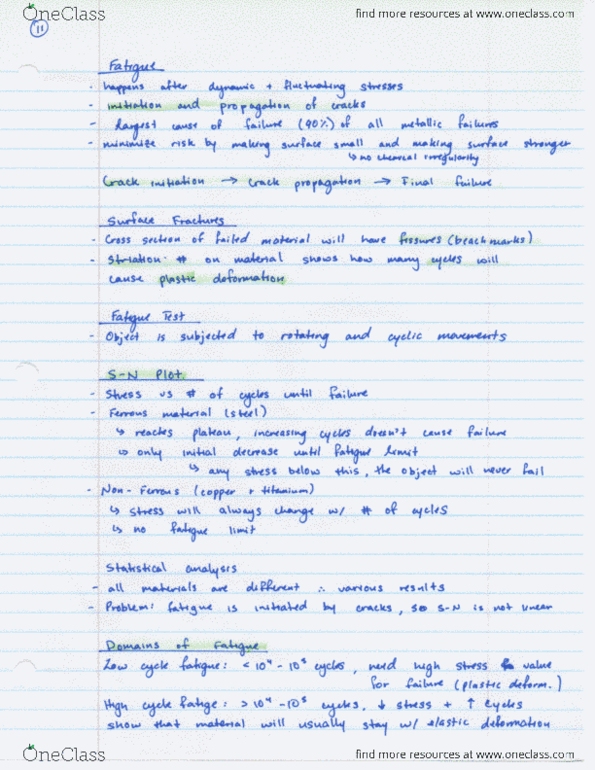 OneClass
find more resources at www.oneclass.com
11
Fatigue
- happens after dynamic + fluctuating stresses
- initiation and propagation of cracks
- largest cause of failure (90%) of all metallic failures
- minimize risk by making surface small and making surface stronger
↳ no chemical irregularity
Crack initiation → Crack propagation → Final failure
Surface Fractures
- Cross section of failed material will have fissures (beachmarks)
- Striation: # on material shows how many cycles will
cause plastic deformation
Fatigue Test
- Object is subjected to rotating and cyclic movements
S-N Plot
- Stress vs # of cycles until failure
- Ferrous material (steel)
↳ reaches plateau, increasing cycles doesn't cause failure
↳ only initial decrease until fatigue limit
↳ any stress below this, the object will never fail
- Non-Ferrous (copper + titanium)
↳ stress will always change w/ # of cycles
↳ no fatigue limit
Statistical analysis
- all materials are different ∴ various results
- Problem: fatigue is initiated by cracks, so S-N is not linear
Domains of Fatigue
Low cycle fatigue: < 10⁴ - 10⁵ cycles, need high stress value
for failure (plastic deform.)
High cycle fatige: > 10⁴ - 10⁵ cycles, ↓ stress + ↑ cycles
show that material will usually stay w/ elastic deformation
OneClass
find more resources at www.oneclass.com